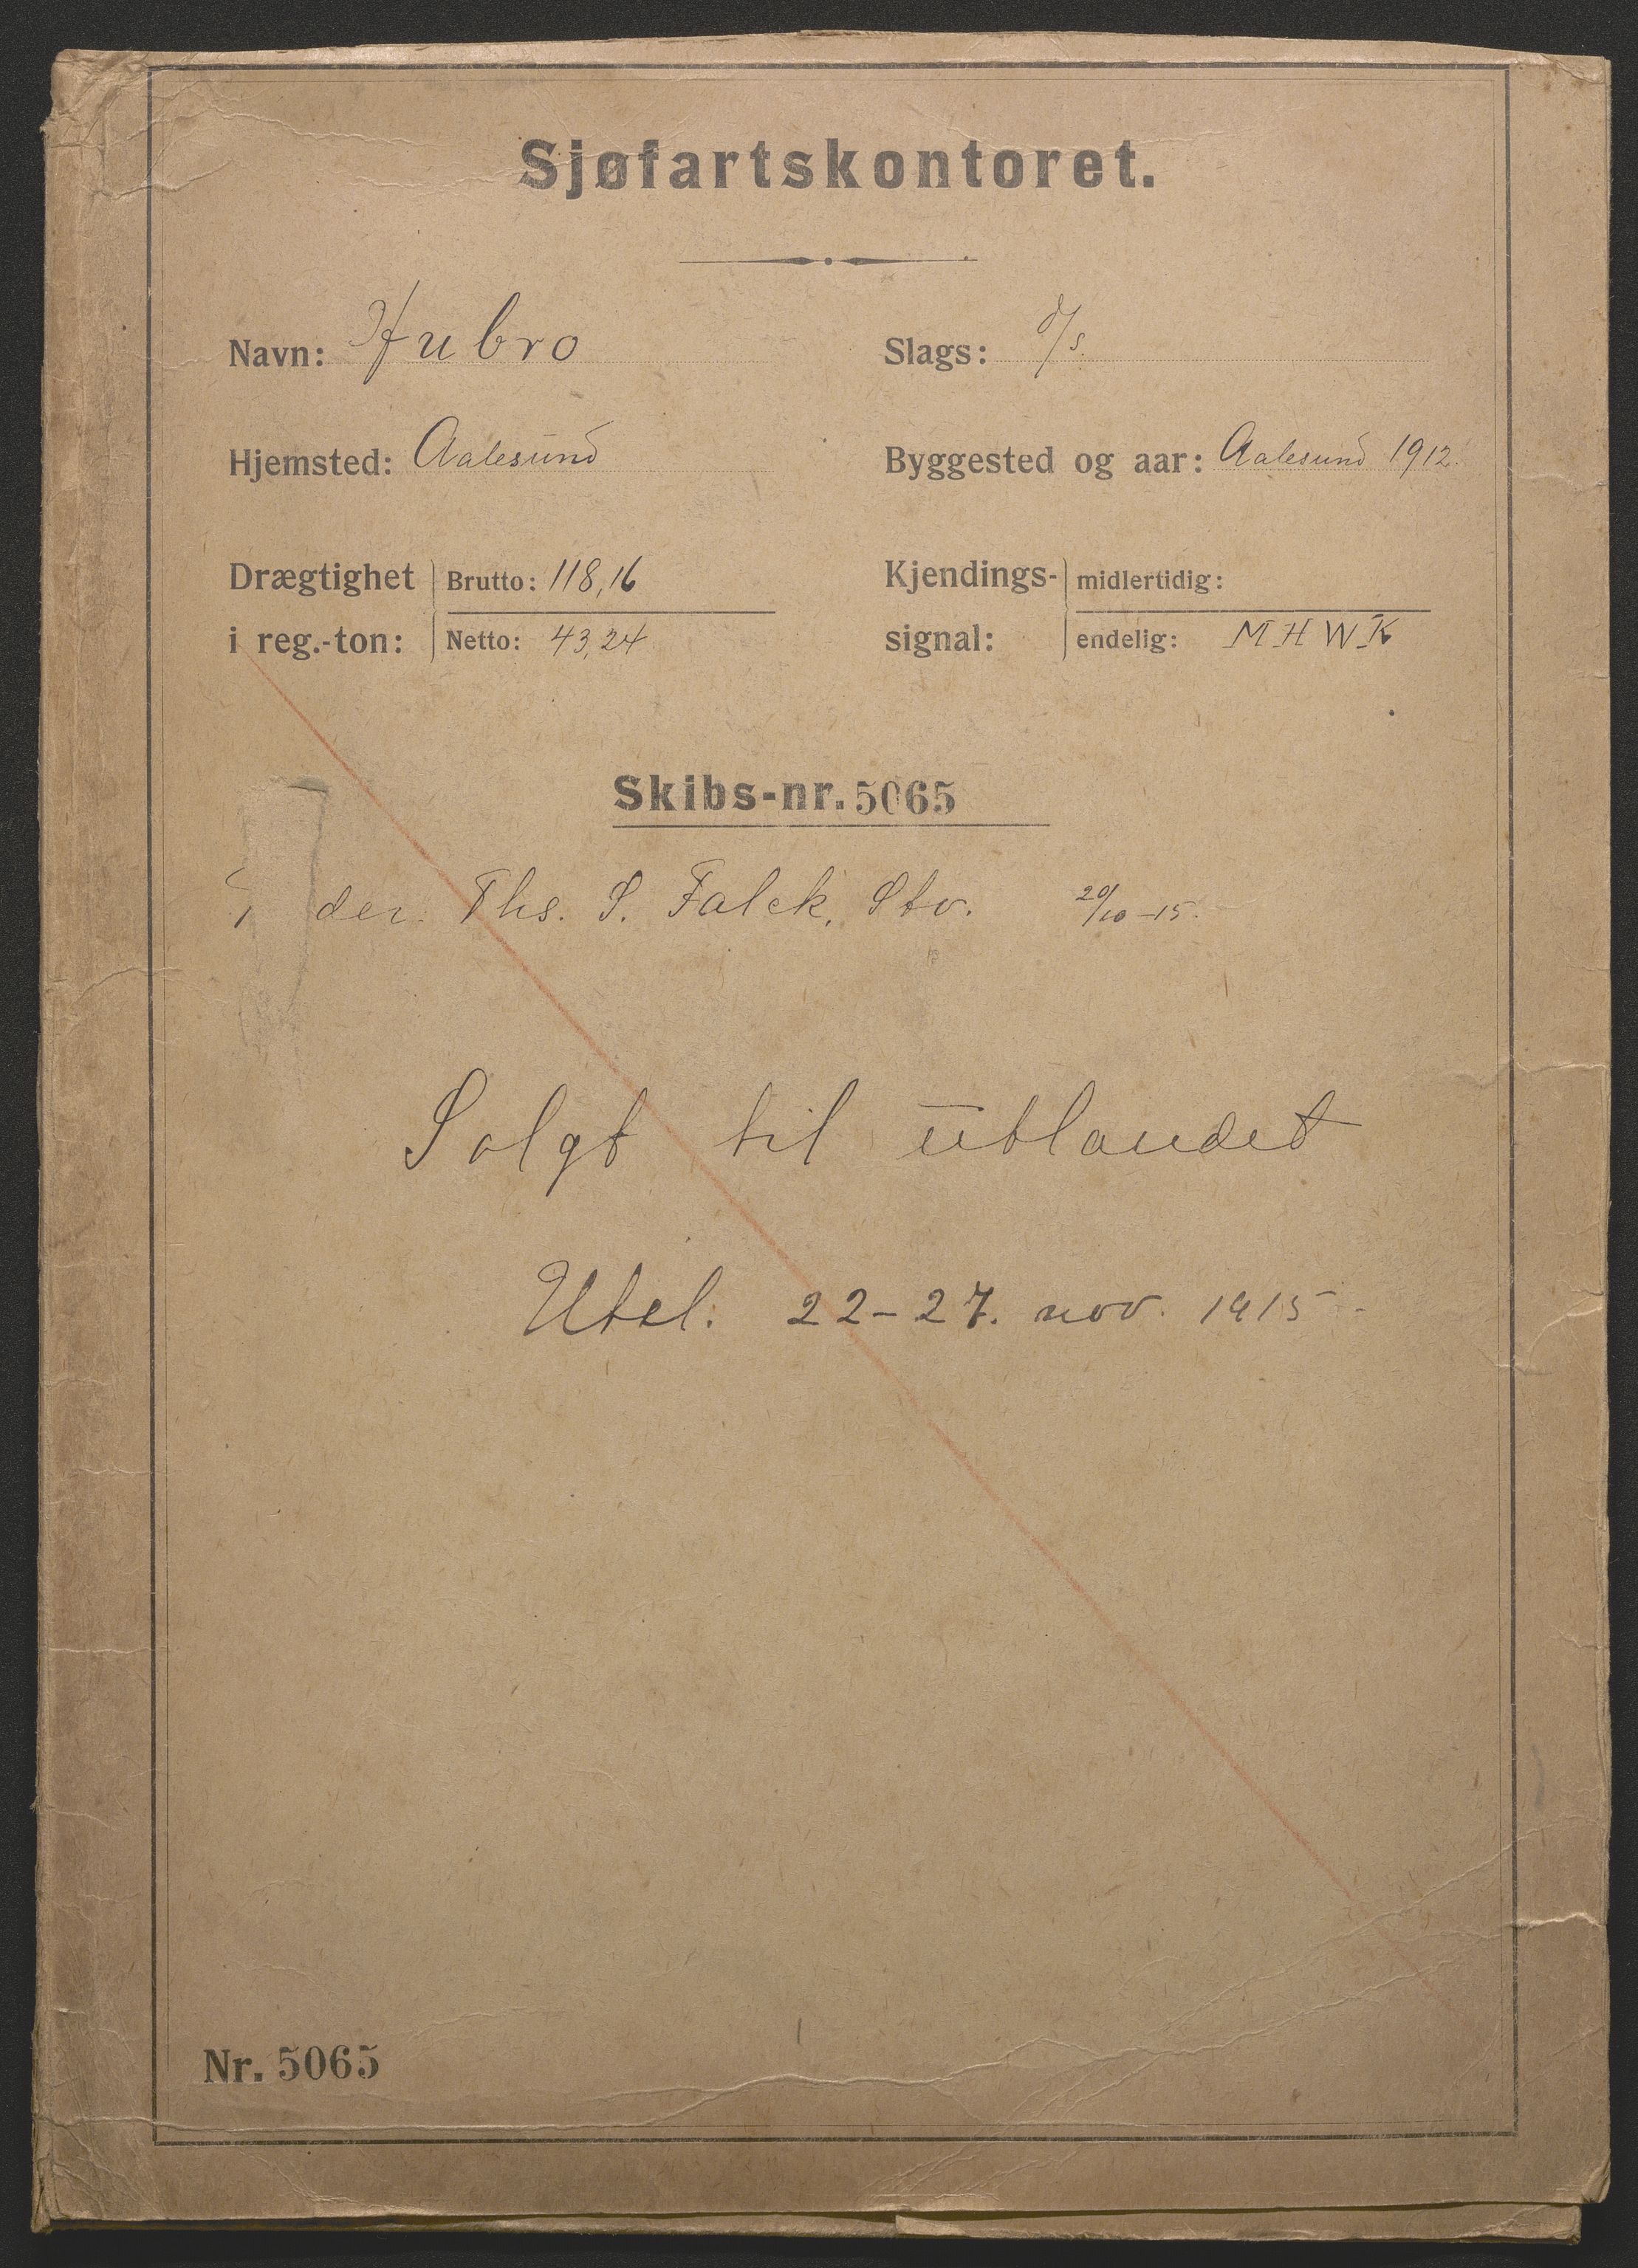 Sjøfartskontoret.
Navn: Hubro
Slags: d/s.
Hjemsted: Aalesund
Byggested og aar: Aalesund 1912.
Drægtighet i reg.-ton:
Brutto: 118,16
Netto: 43,24
Kjendings-signal:
midlertidig:
endelig: MHWK
Skibs-nr. 5065
der. Ths. S. Falck, Stv. 20/10-15.
Solgt til utlandet
Utel. 22-27. nov. 1915.
Nr. 5065